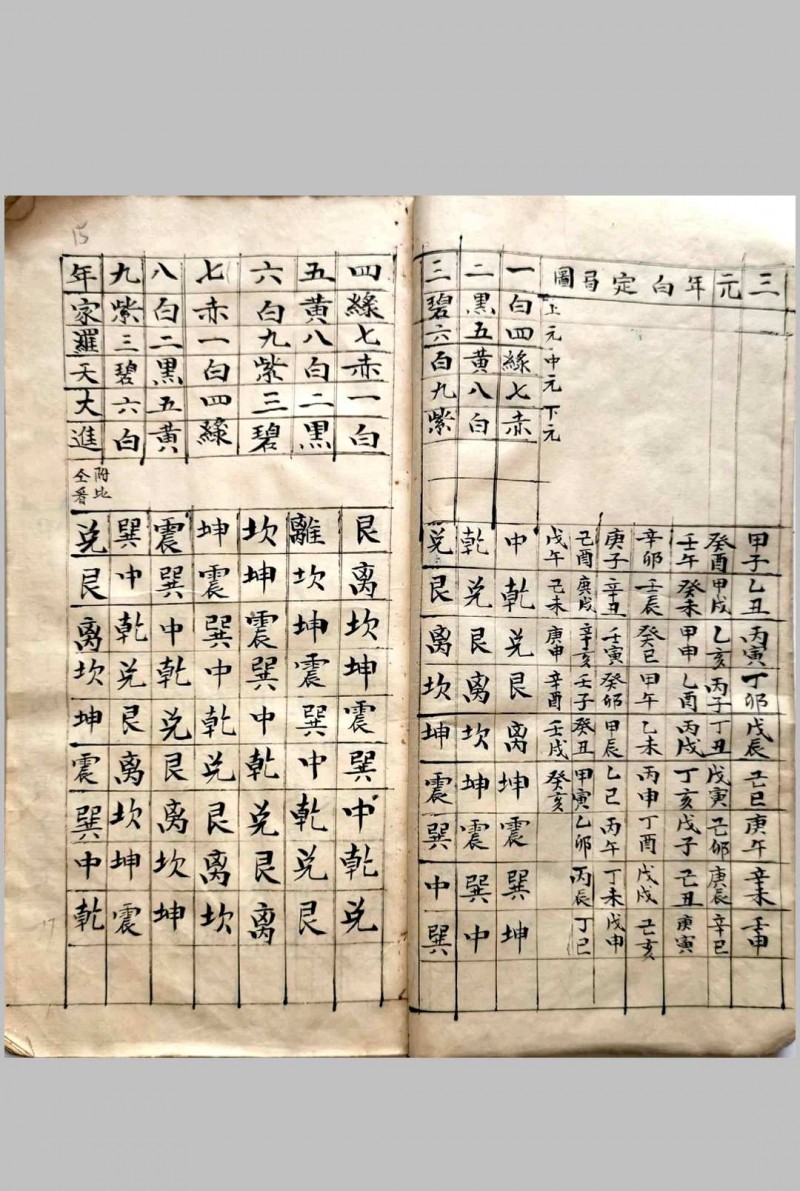 三元年白定局圖
甲子 乙丑 丙寅 丁卯 戊辰 己巳 庚午 辛未 壬申
癸酉 甲戌 乙亥 丙子 丁丑 戊寅 己卯 庚辰 辛巳
壬午 癸未 甲申 乙酉 丙戌 丁亥 戊子 己丑 庚寅
辛卯 壬辰 癸巳 甲午 乙未 丙申 丁酉 戊戌 己亥
庚子 辛丑 壬寅 癸卯 甲辰 乙巳 丙午 丁未 戊申
己酉 庚戌 辛亥 壬子 癸丑 甲寅 乙卯 丙辰 丁巳
上元 中元 下元 戊午 己未 庚申 辛酉 壬戌 癸亥
一白 四綠 七赤 中 乾 兌 艮 离 坤 震 巽 坤
二黑 五黄 八白 乾 兌 艮 离 坎 坤 震 巽 中
三碧 六白 九紫 兌 艮 离 坎 坤 震 巽 中 巽
四綠 七赤 一白 艮 离 坎 坤 震 巽 中 乾 兌
五黄 八白 二黑 離 坎 坤 震 巽 中 乾 兌 艮
六白 九紫 三碧 坎 坤 震 巽 中 乾 兌 艮 离
七赤 一白 四綠 坤 震 巽 中 乾 兌 艮 离 坎
八白 二黑 五黄 震 巽 中 乾 兌 艮 离 坎 坤
九紫 三碧 六白 巽 中 乾 兌 艮 离 坎 坤 震
年家羅天大進 附此仝看 兌 艮 离 坎 坤 震 巽 中 乾
15
17